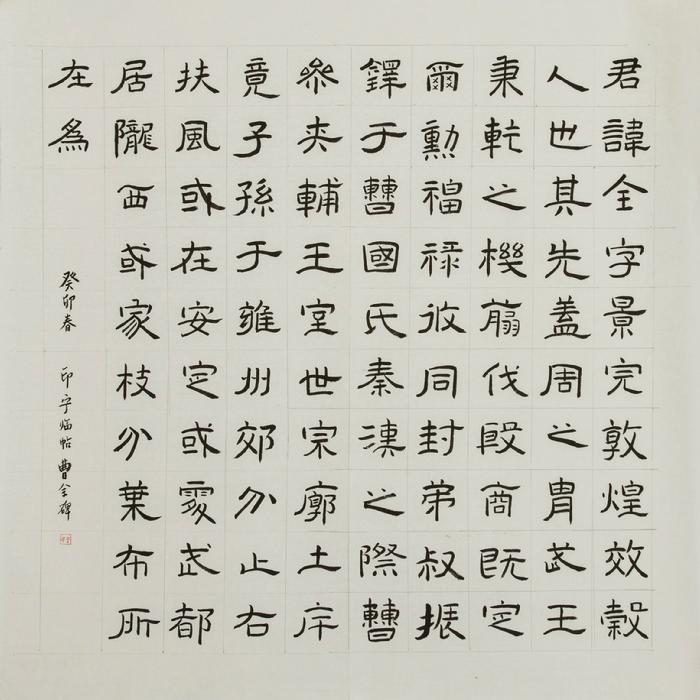 君諱全字景完敦煌效穀
人也其先蓋周之胄武王
秉乾之機翦伐殷商既定
爾勳福祿攸同封弟叔振
鐸于曹國氏秦漢之際曹
參夾輔王室世宗廓土斥
竟子孫于雍州郊分止右
扶風或在安定或處武都
居隴西或家枝分葉布所
在爲
癸卯春 印宇临帖曹全碑